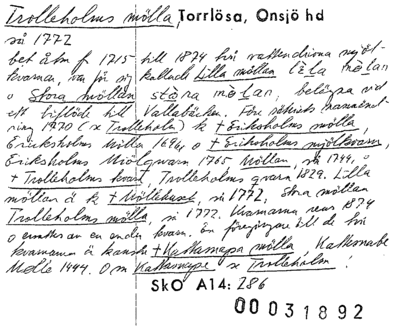 Trolleholms mölla, Torrlösa, Onsjö hd
så 1772
bet åtm fr 1715 till 1874 två vattendrivna mjöl-
kvarnar, var för sig kallade Lilla möllan lèla mèlan
o Stora möllan stòra mèlan, belägna vid
ett biflöde till Vallabäcken. Före säteriets namnänd-
ring 1770 (se Trolleholm) k +Eriksholms mölla,
Ericksholms Mölla 1696, o +Eriksholms mjölkvarn,
Eriksholms Miölqvarn 1765 Möllan, så 1744, o
+Trolleholms kvarn, Trolleholms qvarn 1829. Lilla
möllan ä k +Möllehuset, så 1772, Stora möllan
Trolleholms mölla, så 1772. Kvarnarna revs 1874
o ersattes av en enda kvarn. En föregångare till de två
kvarnarna ä kanske +Kattarnapa mölla, Kattnabe
Mölle 1444. Om Kattarnape se Trolleholm!
SkO A14: 286
00031892